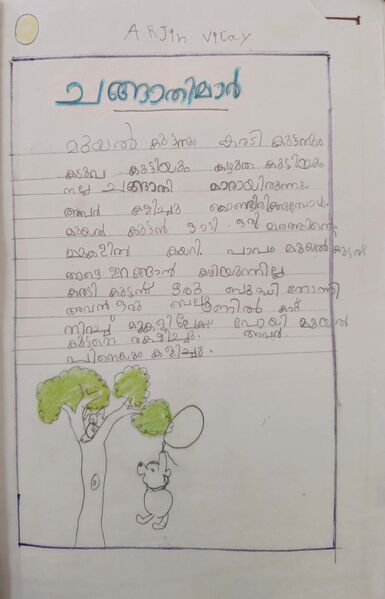 ARJIN VIJAY
ചങ്ങാതിമാർ
മുയൽ കുട്ടനും കരടി കുട്ടനും
കടുവ കുട്ടിയും കഴുത കുട്ടിയും
നല്ല ചങ്ങാതി മാരായിരുന്നു.
അവർ കളിച്ചു കൊണ്ടിരിക്കുമ്പോൾ
മുയൽ കുട്ടൻ ഓടി ഒരു മരത്തിന്റെ
മുകളിൽ കയറി. പാവം മുയൽ കുട്ടന്
താഴെ ഇറങ്ങാൻ കഴിയുന്നില്ല
കരടി കുട്ടന് ഒരു ബുദ്ധി തോന്നി
അവൻ ഒരു ബലൂണിൽ കാറ്റ്
നിറച്ച് മുകളിലേക്ക് പോയി മുയൽ
കുട്ടനെ രക്ഷിച്ചു. അവർ
പിന്നെയും കളിച്ചു.